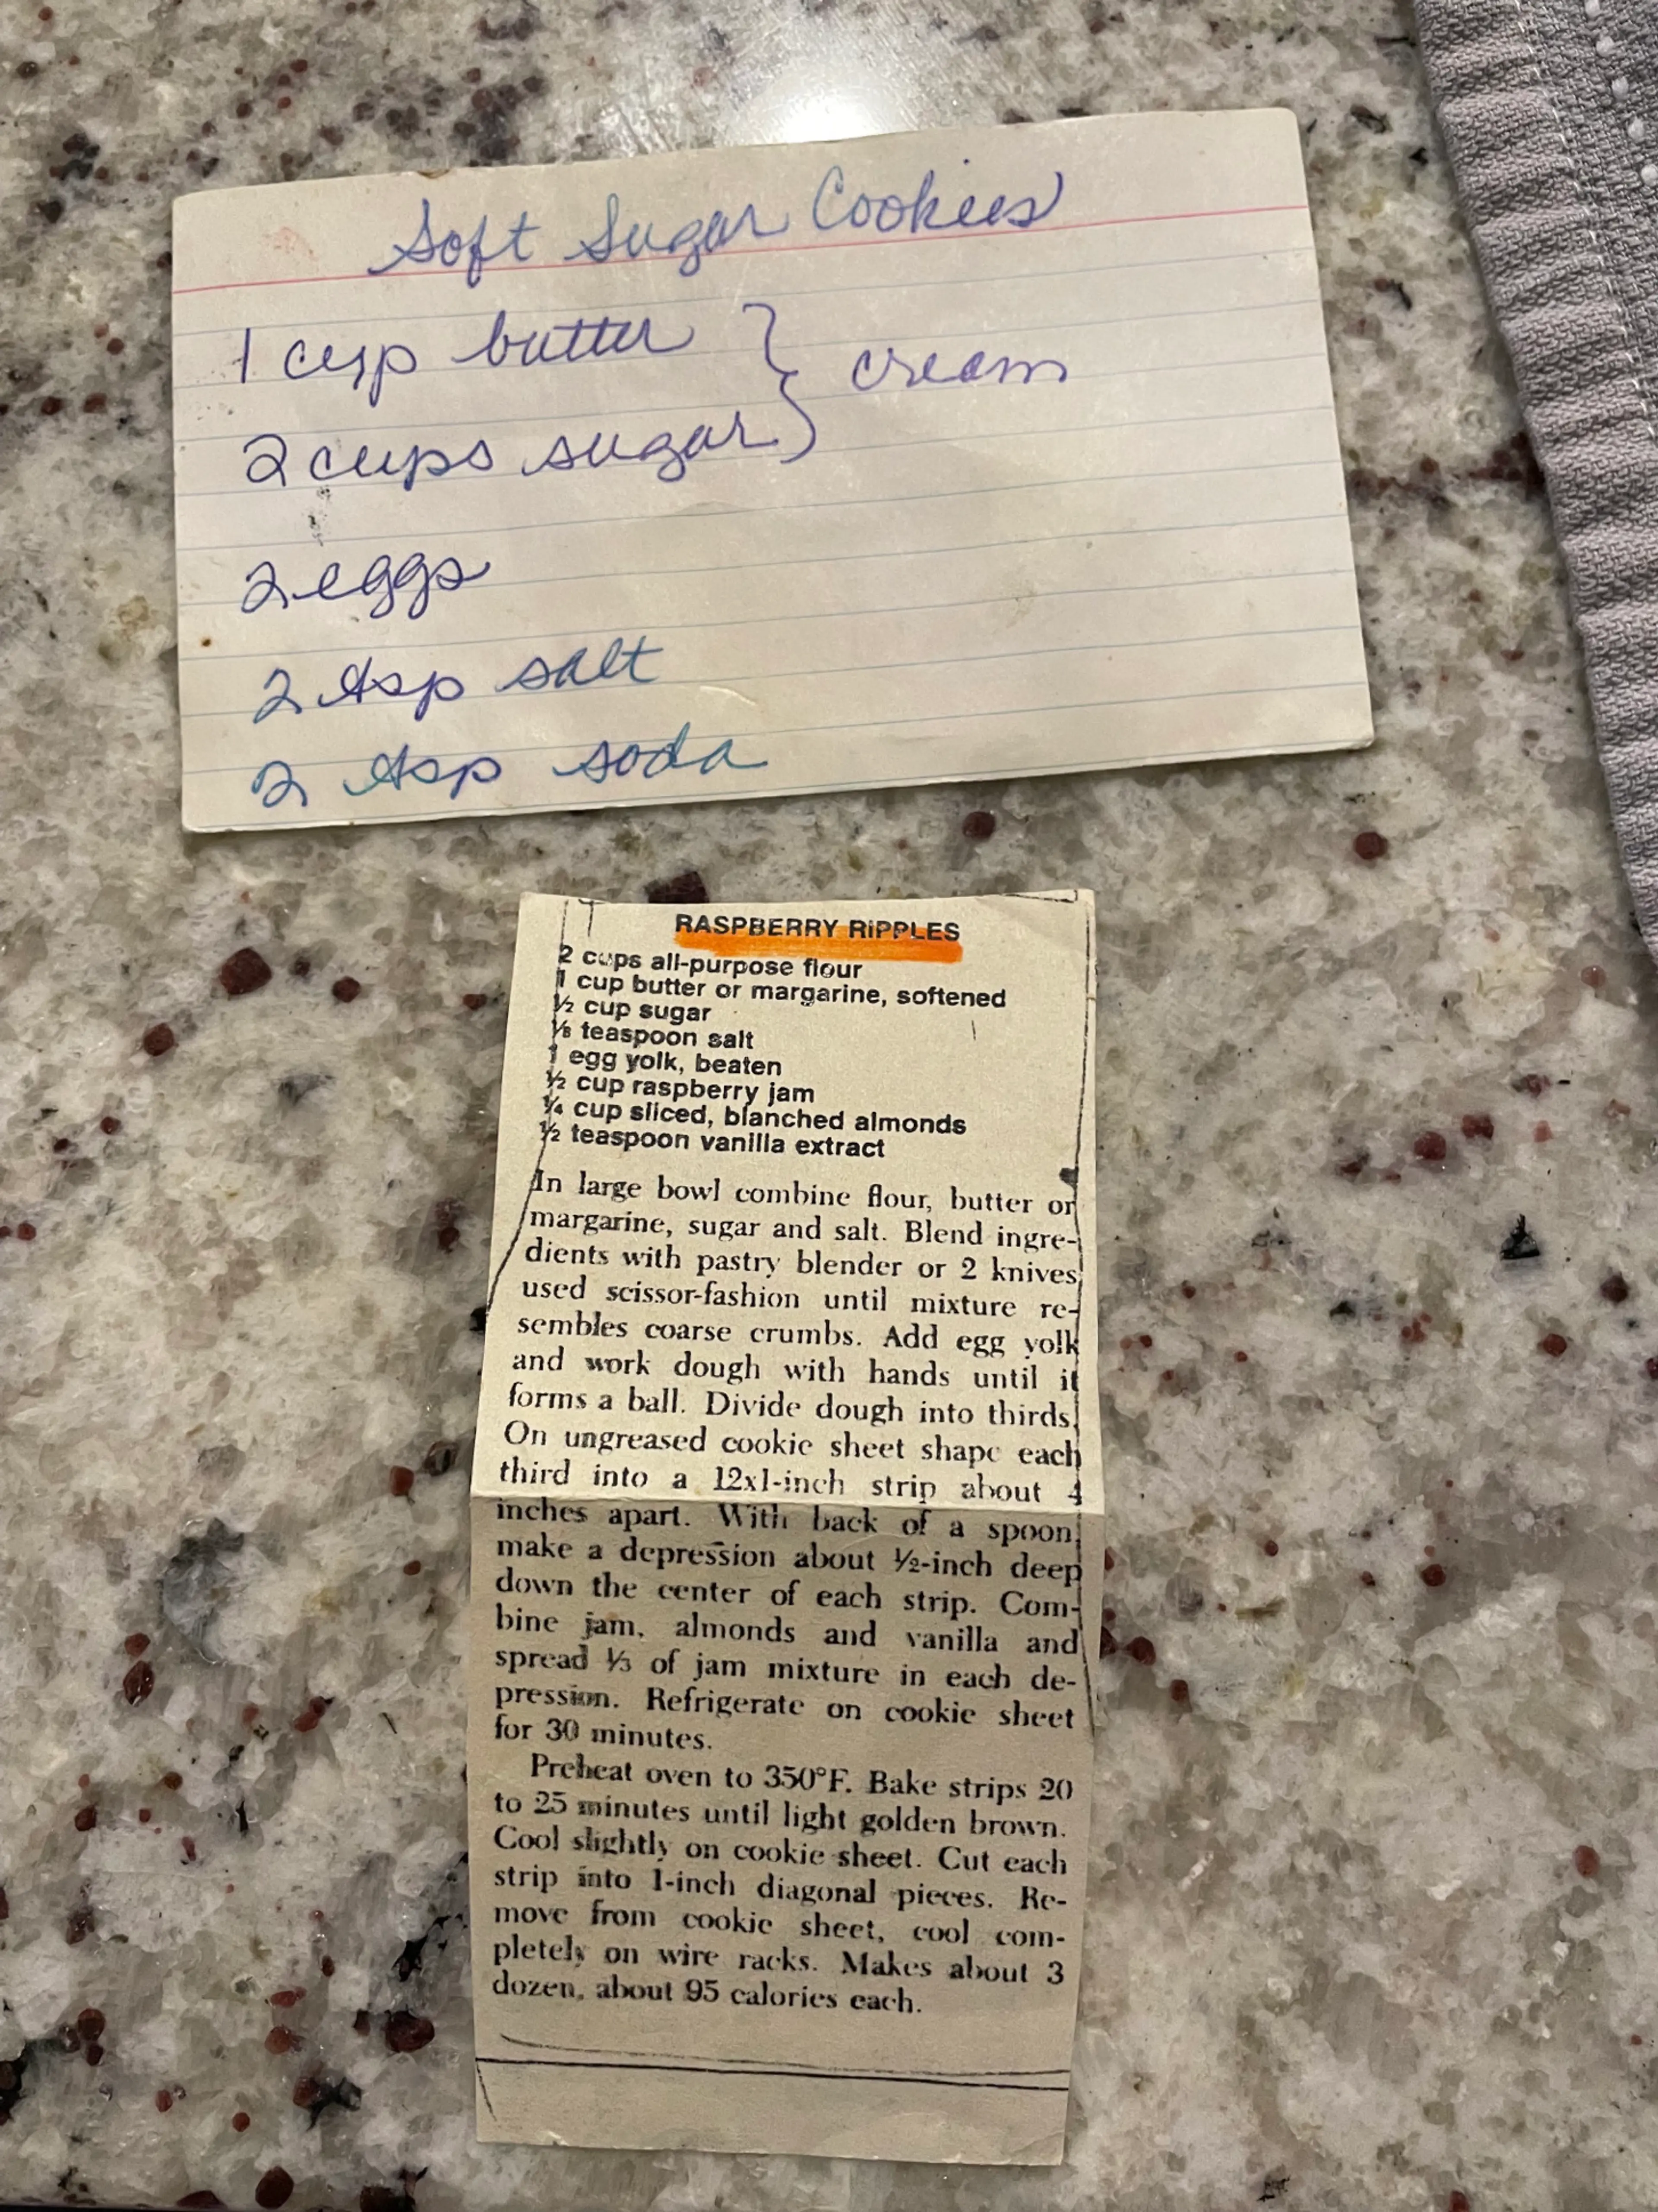 Soft Sugar Cookies
1 cup butter } cream
2 cups sugar
2 eggs
2 tsp salt
2 tsp soda
RASPBERRY RIPPLES
2 cups all-purpose flour
1 cup butter or margarine, softened
½ cup sugar
⅛ teaspoon salt
1 egg yolk, beaten
½ cup raspberry jam
¼ cup sliced, blanched almonds
½ teaspoon vanilla extract
In large bowl combine flour, butter or
margarine, sugar and salt. Blend ingre-
dients with pastry blender or 2 knives
used scissor-fashion until mixture re-
sembles coarse crumbs. Add egg yolk
and work dough with hands until it
forms a ball. Divide dough into thirds.
On ungreased cookie sheet shape each
third into a 12x1-inch strip about 4
inches apart. With back of a spoon,
make a depression about ½-inch deep
down the center of each strip. Com-
bine jam, almonds and vanilla and
spread ⅓ of jam mixture in each de-
pression. Refrigerate on cookie sheet
for 30 minutes.
Preheat oven to 350°F. Bake strips 20
to 25 minutes until light golden brown.
Cool slightly on cookie sheet. Cut each
strip into 1-inch diagonal pieces. Re-
move from cookie sheet, cool com-
pletely on wire racks. Makes about 3
dozen, about 95 calories each.